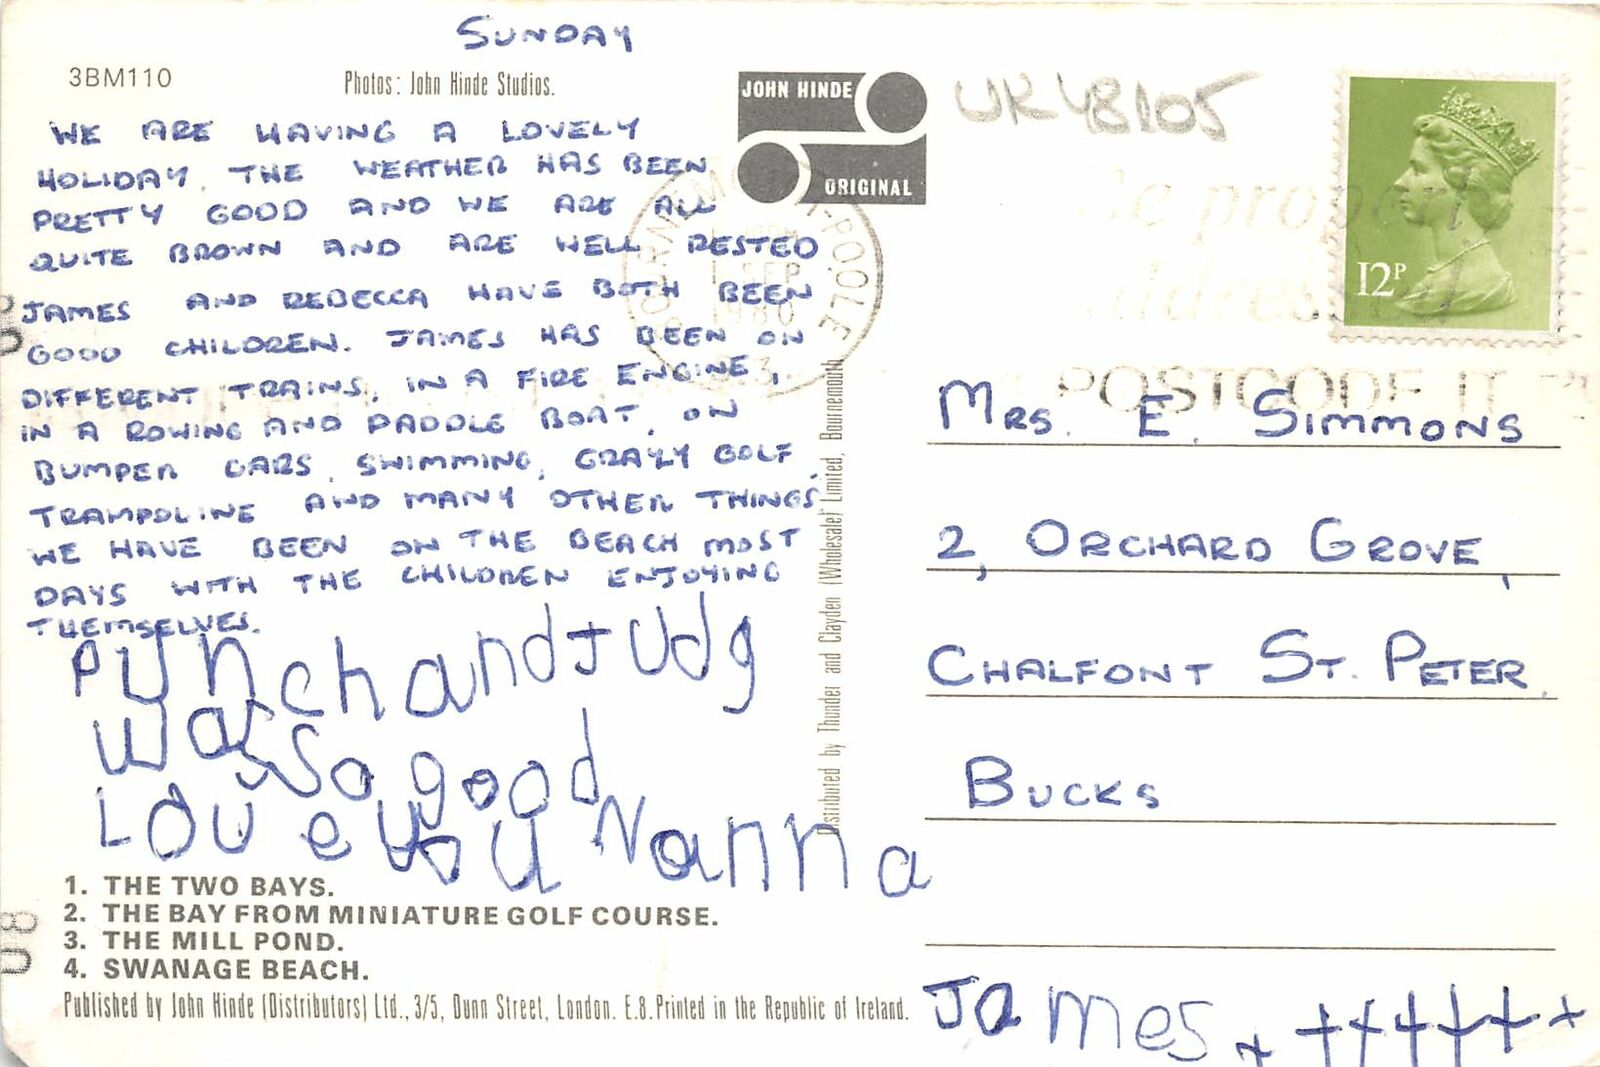 SUNDAY
3BM110
Photos: John Hinde Studios.
WE ARE HAVING A LOVELY
HOLIDAY. THE WEATHER HAS BEEN
PRETTY GOOD AND WE ARE ALL
QUITE BROWN AND ARE WELL RESTED
JAMES AND REBECCA HAVE BOTH BEEN
GOOD CHILDREN. JAMES HAS BEEN ON
DIFFERENT TRAINS, IN A FIRE ENGINE,
IN A ROWING AND PADDLE BOAT, ON
BUMPER CARS, SWIMMING, CRAZY GOLF,
TRAMPOLINE AND MANY OTHER THINGS
WE HAVE BEEN ON THE BEACH MOST
DAYS WITH THE CHILDREN ENJOYING
THEMSELVES.
Punch and Judg
was so good
Love you Nanna
1. THE TWO BAYS.
2. THE BAY FROM MINIATURE GOLF COURSE.
3. THE MILL POND.
4. SWANAGE BEACH.
Published by John Hinde (Distributors) Ltd., 3/5, Dunn Street, London. E.8. Printed in the Republic of Ireland.
Distributed by Thunder and Clayden (Wholesale) Limited, Bournemouth
JOHN HINDE
ORIGINAL
UK48105
BOURNEMOUTH-POOLE
SEP
1980
Be properly
addressed
POSTCODE IT
12P
MRS. E. SIMMONS
2, ORCHARD GROVE,
CHALFONT ST. PETER.
BUCKS
James x x x x x x x